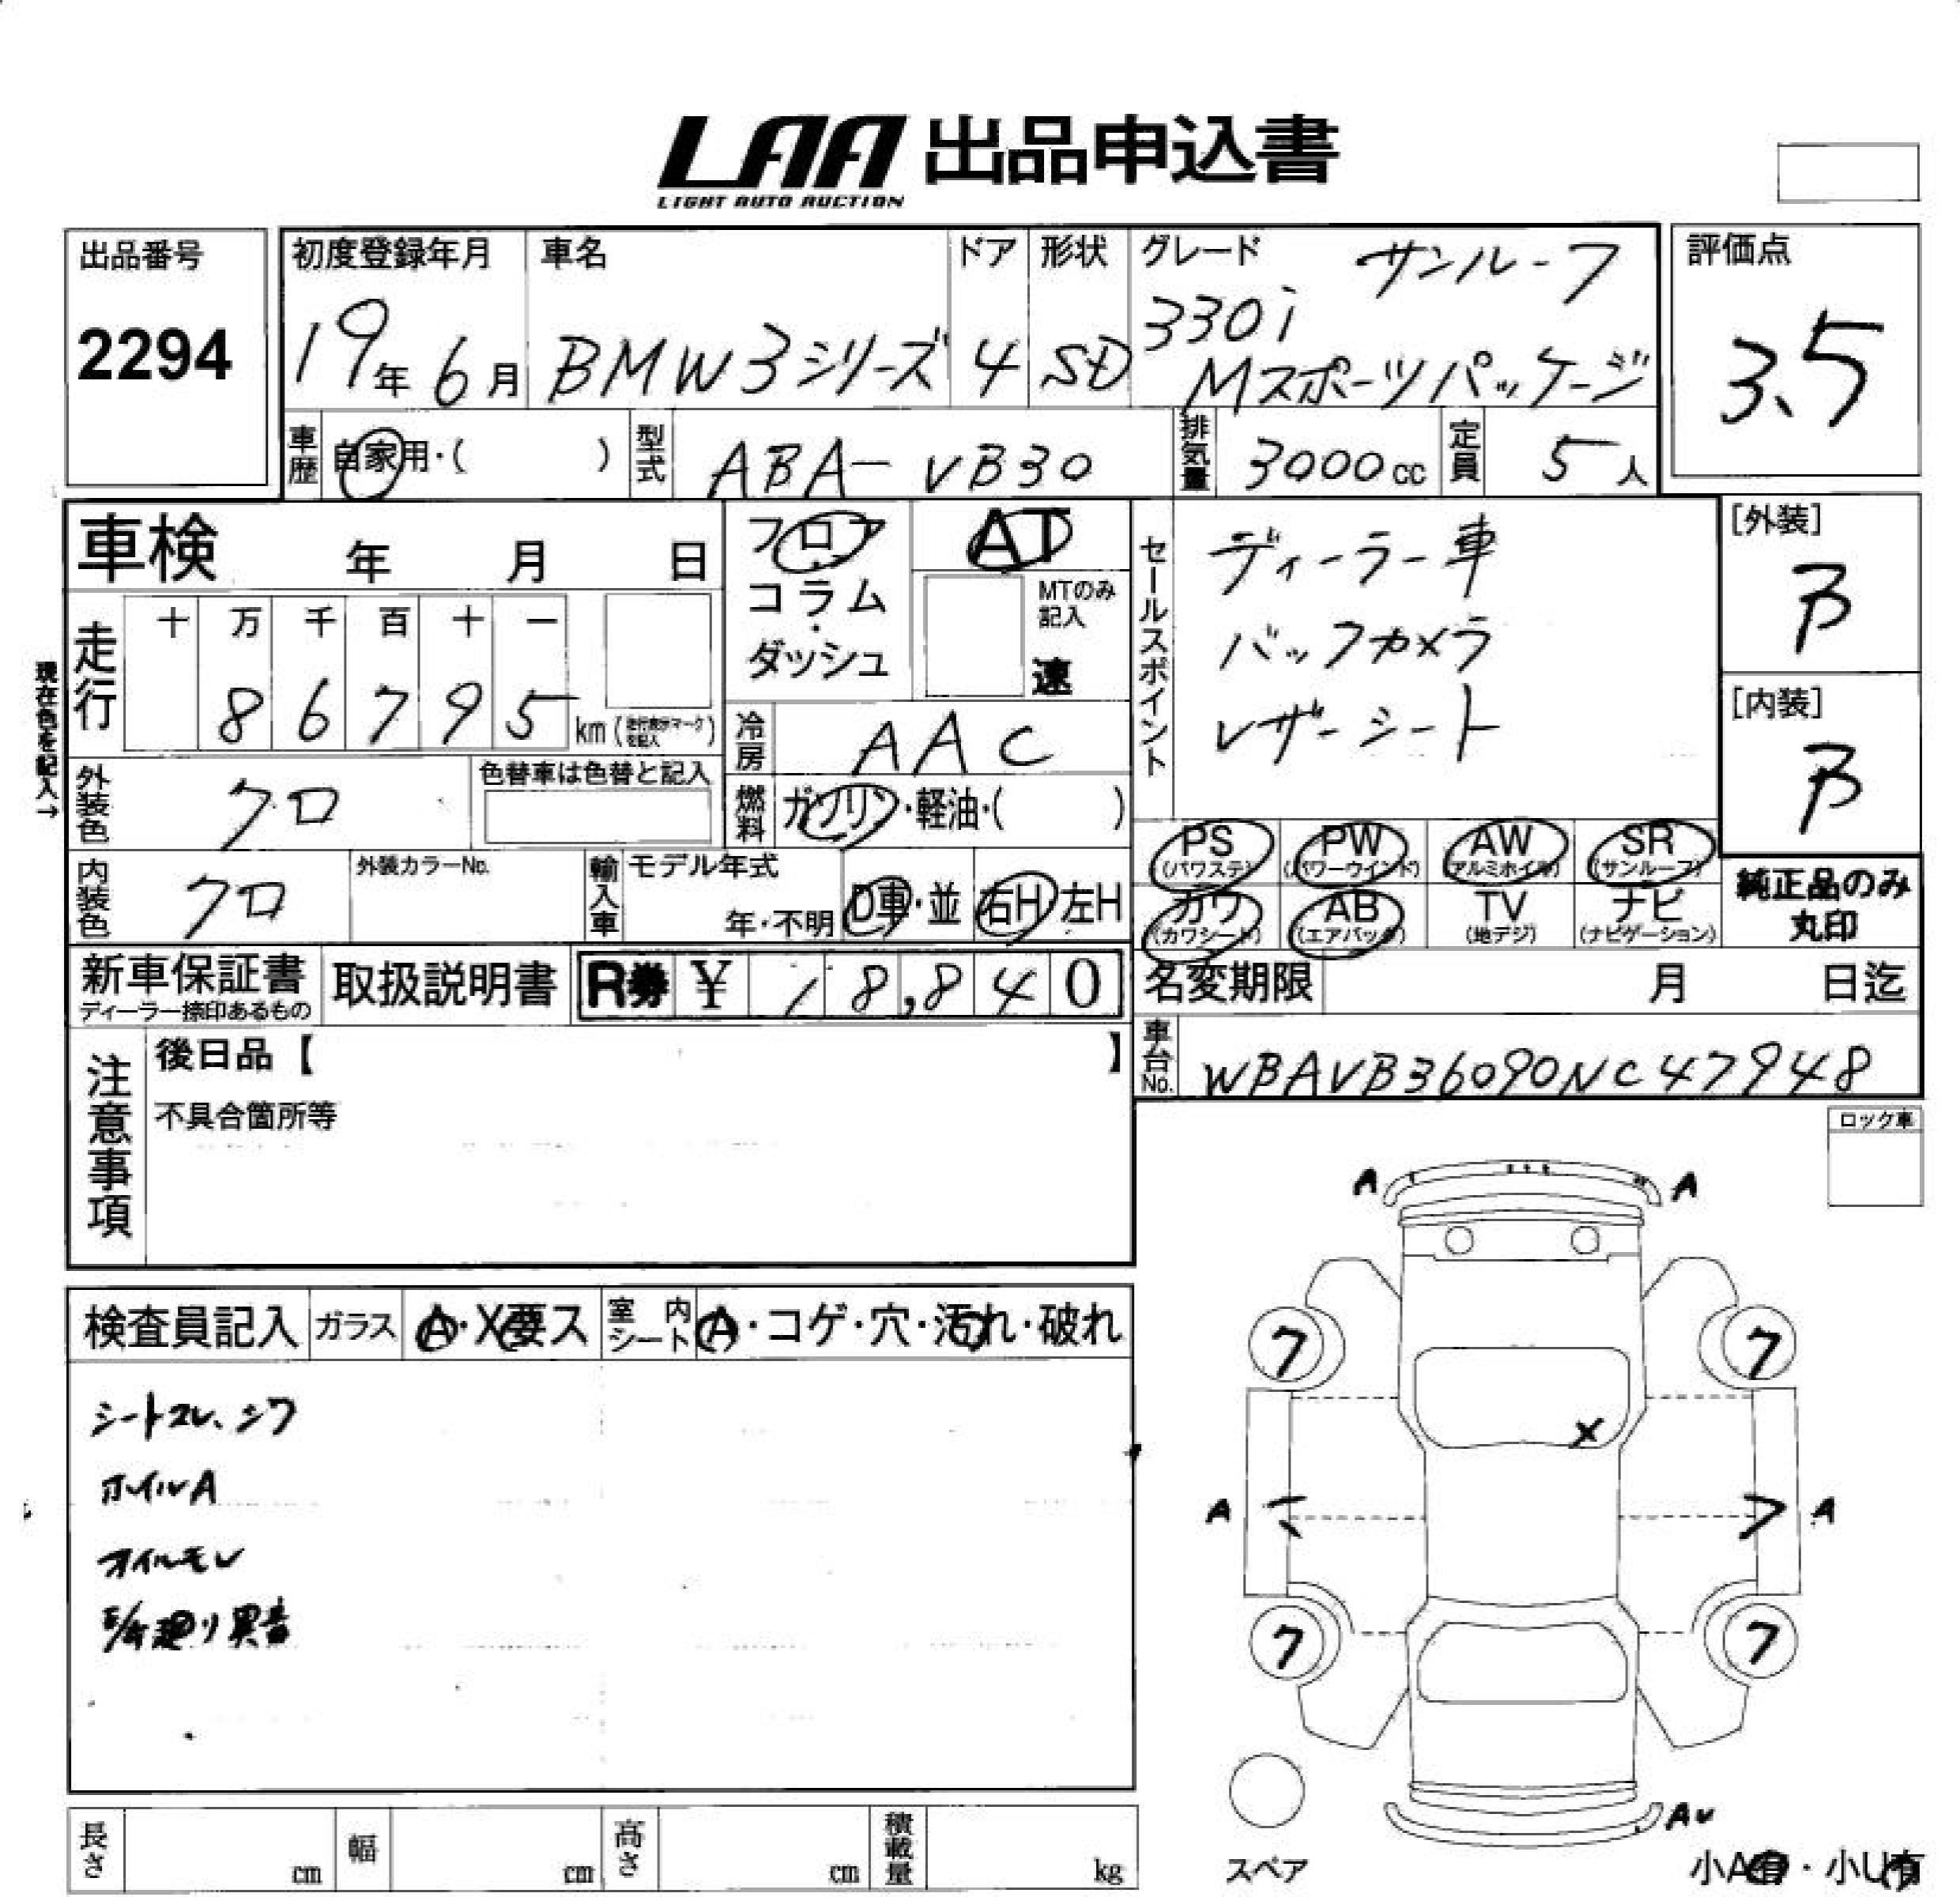 LAA 出品申込書
LIGHT AUTO AUCTION
出品番号
2294
初度登録年月
19年6月
車名
BMW3シリーズ
ドア
4
形状
SD
グレード サンルーフ
330i
Mスポーツパッケージ
評価点
3.5
車歴 自家用・( )
型式 ABA-VB30
排気量 3000cc
定員 5人
車検 年 月 日
フロア
・
コラム
・
ダッシュ
AT
MTのみ
記入
速
セールスポイント
ディーラー車
バックカメラ
レザーシート
[外装]
B
[内装]
B
現在色を記入→
走行
十 万 千 百 十 一
8 6 7 9 5 km (走行表示マークを記入)
冷房 AAC
外装色 クロ
色替車は色替と記入
燃料 ガソリン・軽油・( )
内装色 クロ
外装カラーNo.
輸入車
モデル年式
年・不明
D車・並
右H 左H
PS PW AW SR
(パワステ) (パワーウインド) (アルミホイル) (サンルーフ)
カワ AB TV ナビ
(カワシート) (エアバック) (地デジ) (ナビゲーション)
純正品のみ
丸印
新車保証書
ディーラー捺印あるもの
取扱説明書
R券 ¥ 18,840
名変期限 月 日迄
車台No. WBAVB36090NC47948
注意事項
後日品【 】
不具合箇所等
ロック車
検査員記入
ガラス A・X要ス
室内シート A・コゲ・穴・汚れ・破れ
シートスレ、シワ
ホイルA
オイルモレ
廻り異音
A A
7 7
X
A A
7 7
AU
スペア
小A有・小U有
長さ cm
幅 cm
高さ cm
積載量 kg